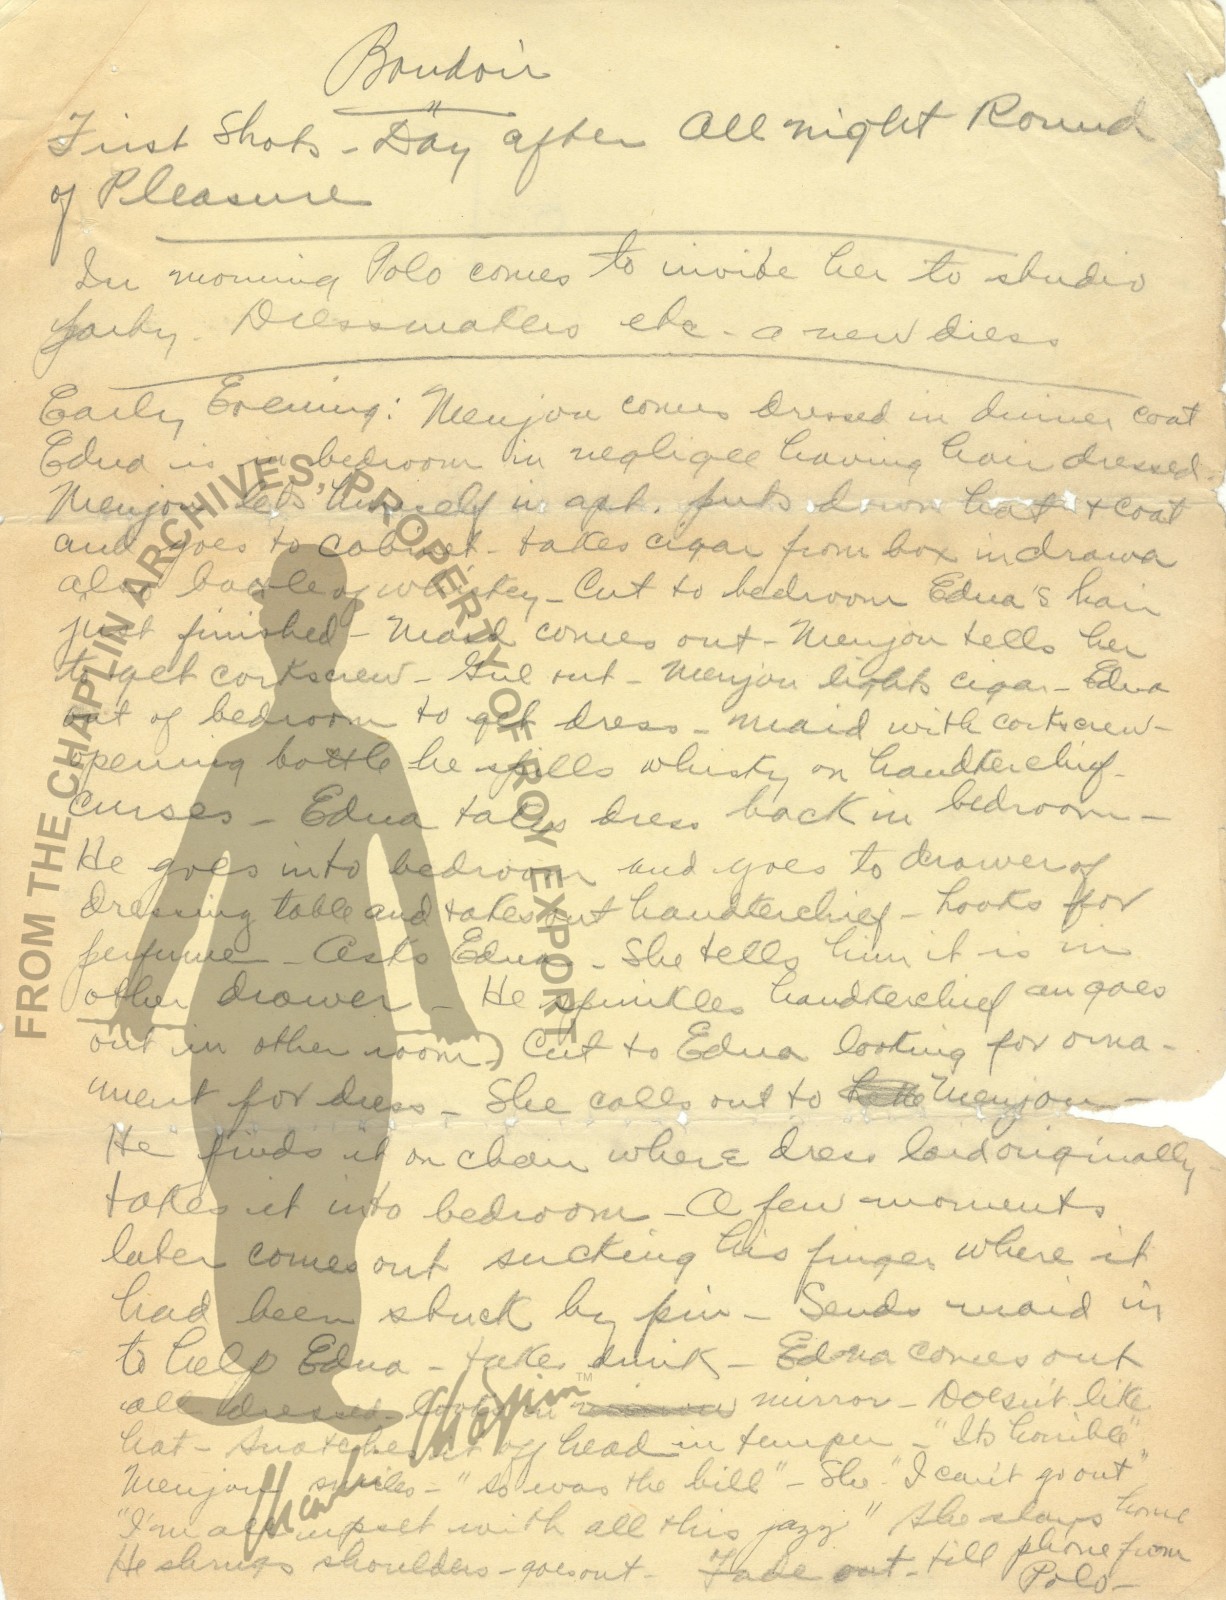 Boudoir
First Shots - Day after All night Round
of Pleasure
In morning Polo comes to invite her to studio
party. Dressmakers etc - a new dress
Early Evening: Menjou comes dressed in dinner coat
Edna is in bedroom in negligee having hair dressed.
Menjou lets himself in apt. puts down hat + coat
and goes to cabinet - takes cigar from box in drawa
also bottle of whiskey - Cut to bedroom Edna's hair
just finished - Maid comes out - Menjou tells her
to get corkscrew - Girl out - Menjou lights cigar - Edna
out of bedroom to get dress - maid with corkscrew -
opening bottle he spills whisky on handkerchief -
curses - Edna takes dress back in bedroom -
He goes into bedroom and goes to drawer of
dressing table and takes out handkerchief - Looks for
perfume - Asks Edna - She tells him it is in
other drawer - He sprinkles handkerchief an goes
out in other room) Cut to Edna looking for orna-
ment for dress - She calls out to Menjou -
He finds it on chair where dress laid originally -
takes it into bedroom - A few moments
later comes out sucking his finger where it
had been stuck by pin - Sends maid in
to help Edna - takes drink - Edna comes out
all dressed - looks in mirror - Doesn't like
hat - snatches it off head in temper - "Its horrible"
Menjou smiles - "so was the bill" - She "I can't go out"
"I'm all upset with all this jazz" She stays home
He shrugs shoulders - goes out - Fade out - till phone from
Polo -
FROM THE CHAPLIN ARCHIVES, PROPERTY OF ROY EXPORT
Charlie Chaplin™